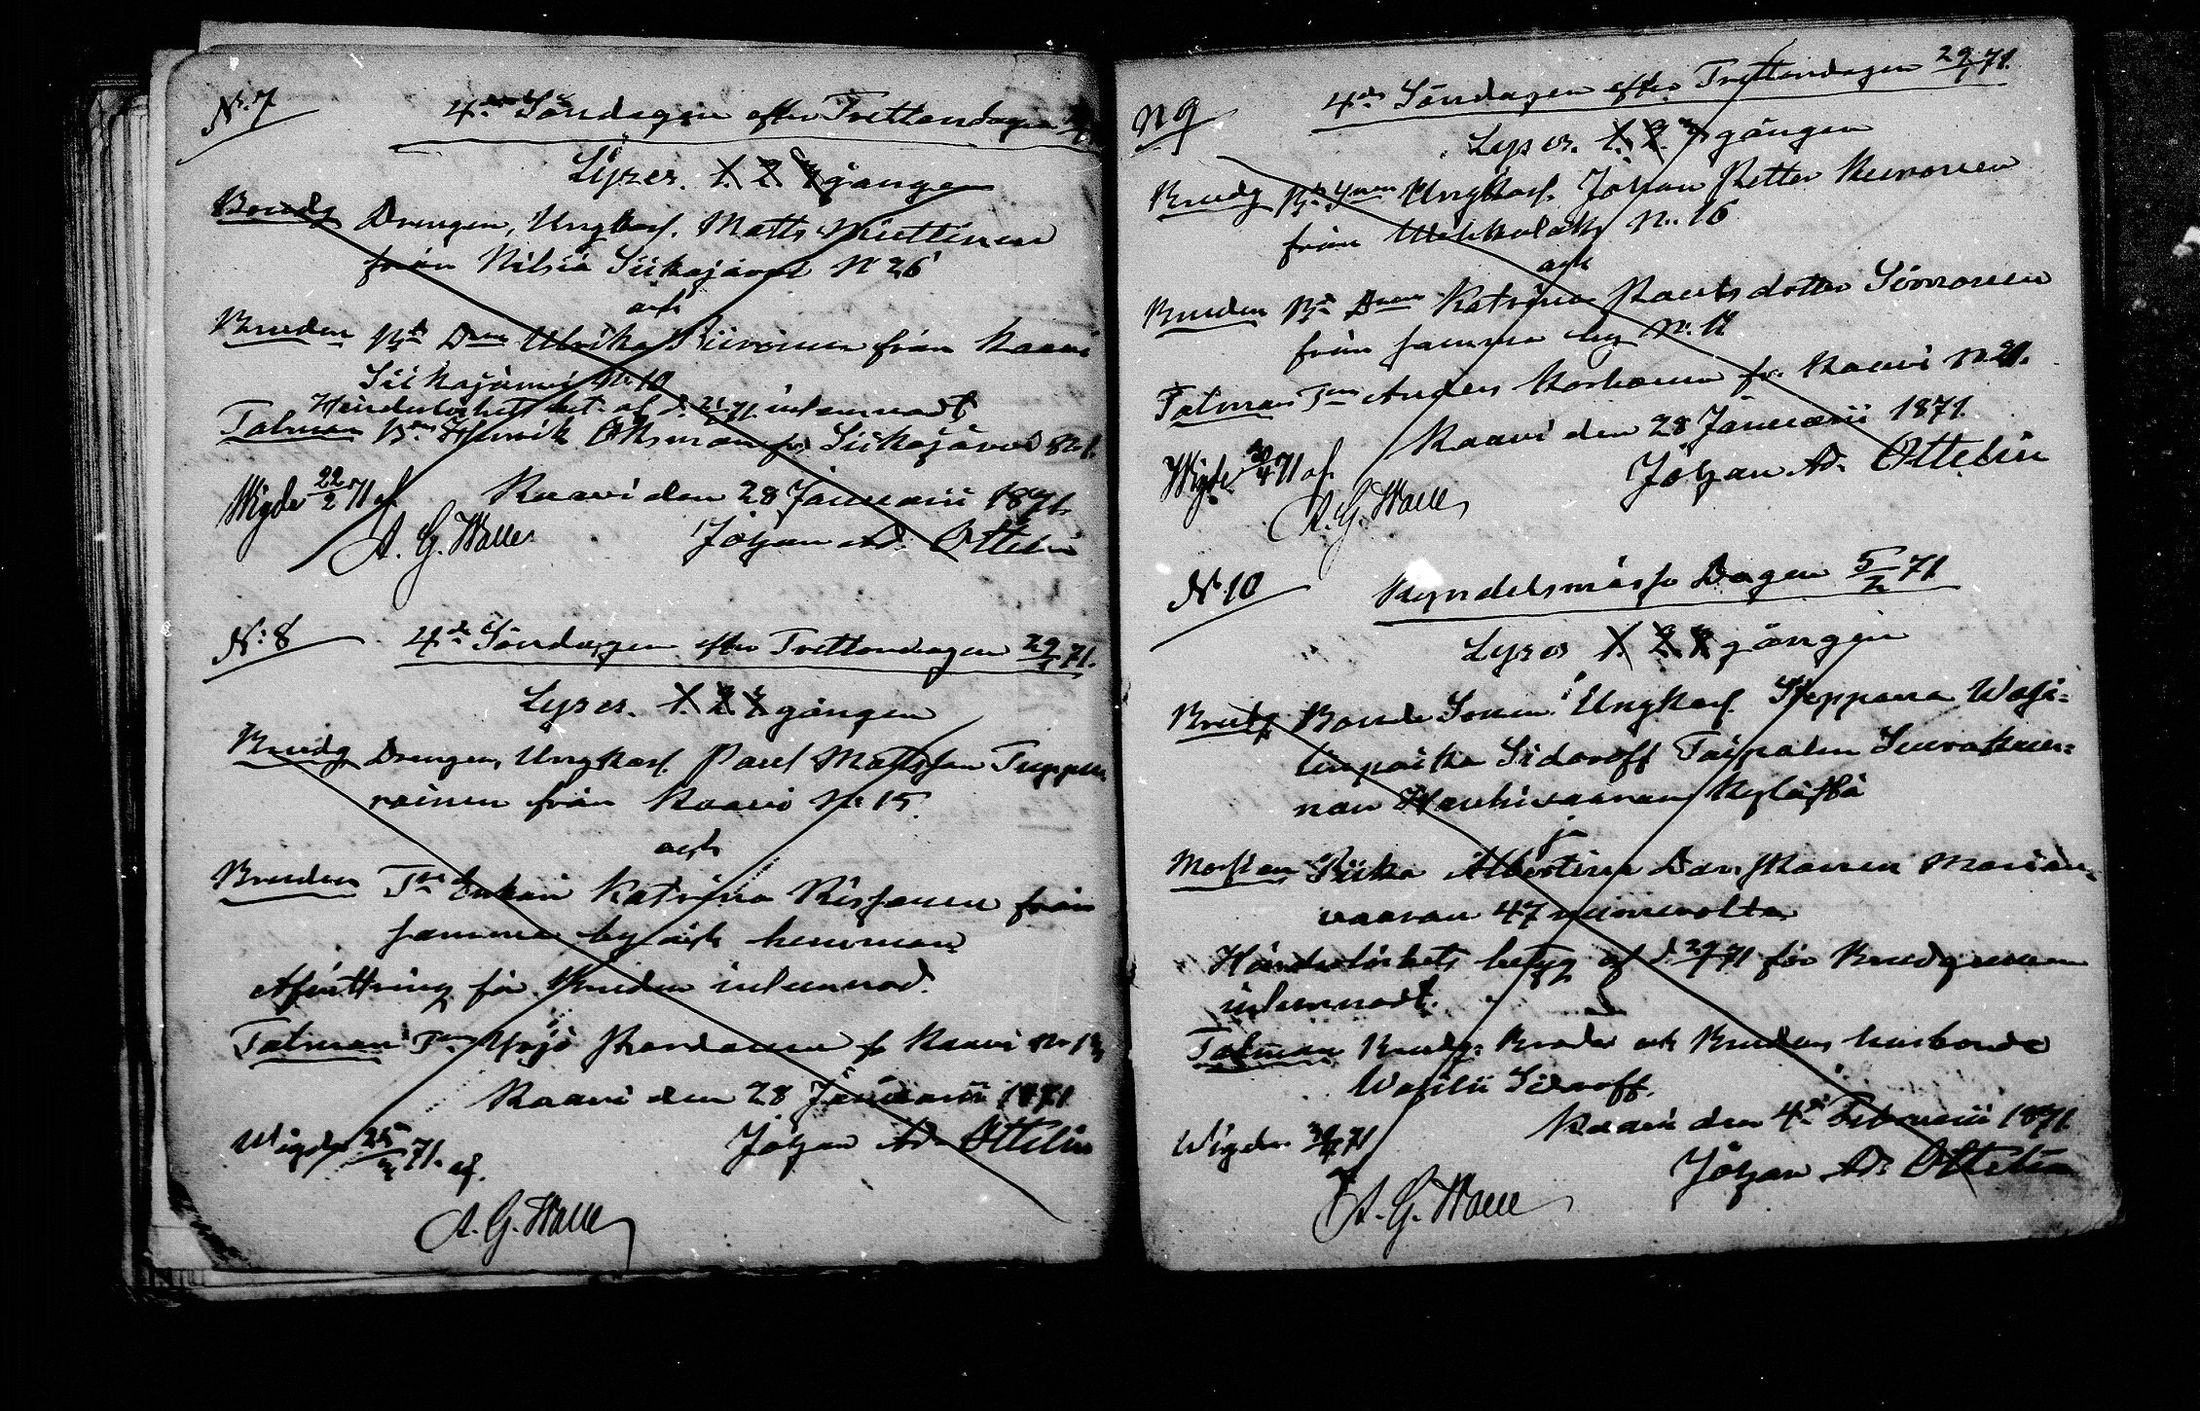 N:7
4de Söndagen efter Trettondagen
Lyses. 1. 2. 3 gången
Brudg Drengen, Ungkarl. Matts Miettinen
från Nilsiä Siikajärvi N 26
och
Bruden Bd Dren Ulrika Riironen från Kaavi
Siikajärvi No 10
Hinderlöshets bet. af d. 21/1 71 inlemnadt
Talman Bon Henrik Oksman fr Siikajärvi No 1.
Wigde 22/2 71 af Kaavi den 28 Januarii 1871.
A. G. Walle Johan Ad. Ottelin
N:8 4de Söndagen efter Trettondagen 29/1 71.
Lyses. 1. 2. 3 gången
Brudg Drengen, Ungkarl. Paul Mattsson Tuppu
rainen från Kaavi No 15.
och
Bruden Enkan Katrina Rissanen från
samma by och hemman
Afvittring för Bruden inlemnad.
Talman Yrjö f Kaavi No
Kaavi den 28 Januarii 1871
Wigde 25/3 71. af. Johan Ad. Ottelin
A. G. Walle
N 9 4de Söndagen efter Trettondagen 29/1 71.
Lyses. 1. 2. 3 gången
Brudg Bd Ungkarl. Johan Petter
från No. 16
och
Bruden Bd Katrina Paulsdotter
från samma by No. 17
Talman Anders fr. Kaavi No 21.
Kaavi den 28 Januarii 1871.
Wigde 71 af. Johan Ad. Ottelin
A. G. Walle
N. 10 Kyndelsmässo Dagen 5/2 71
Lyses 1. 2. 3 gången
Brudg Bonde Sonen Ungkarl. Steppana Wasi-
linpoika Sidoroff Taipalen Seurakun-
nan Haukivaaran Kylästä
ja
Morsian Piika Albertina Dav. Marian-
vaaran 47 numerolta
Hinderlöshets betyg af d 29/1 71 för Brudgummen
inlemnadt.
Talman Brudg. Broder och Brudens husbonde
Wasilii Sidoroff.
Kaavi den 4de Februarii 1871.
Wigde 71 Johan Ad. Ottelin
A. G. Walle